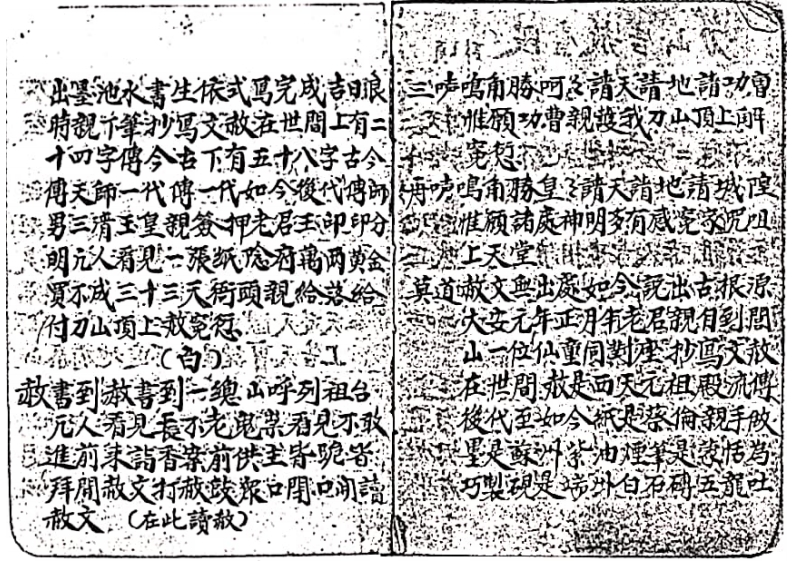 三咘鳴角勝呵々請天請地請功曹
惟願功曹親護我刀山頂上解
冤愆
再咘鳴角勝皇々請天請地請城隍
惟願諸處神明多有感冤家咒咀
上天堂
莫道赦文無出處如今説出古根源
大安元年正月有老君親自到閭
山一位仙童同對座抄寫文赦
在世間赦是西天元祖殿流傳
後代至如今紙是蔡倫親手做
墨是蘇州紫油煙筆是蒙恬為
巧製硯是端州白石磚五龍吐
出墨池水書生依式寫完成吉日良
時親下筆抄寫文赦在世間上有二
十四字傳今古下有五十八字古今
傳天師一代傳一代如今後代傳師
男三清玉皇親簽押老君玉印印分
明元人看見一張紙陰府萬兩黄金
買不成三十三天衙頭親給落給
付刀山頂上赦冤愆
(白)
赦書到赦書到一總山呼列祖台
元人看見長不老鬼祟看見不敢
進前來詣香案前供主皆跪皆
拜開赦文打赦鼓眾口開口開讀
赦文 (在此讀赦)